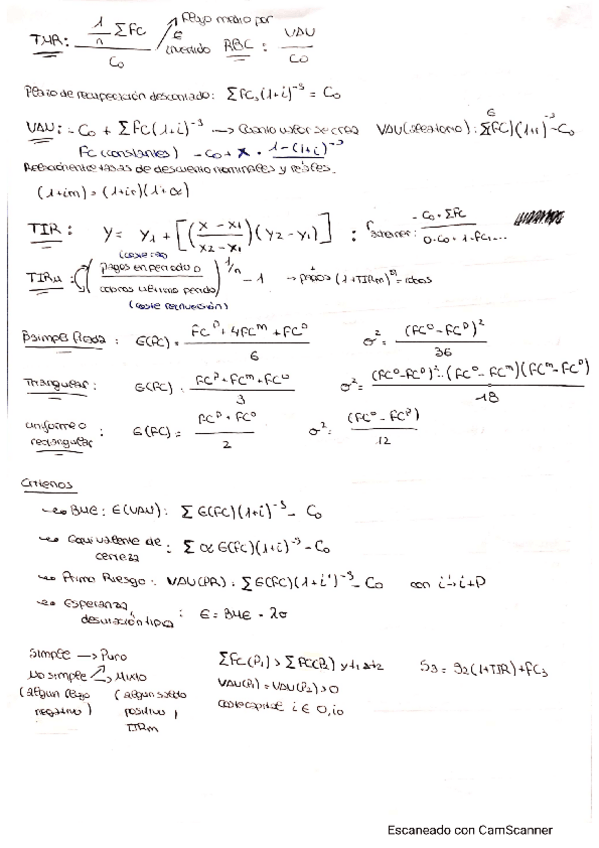 TMR: (1/n ΣFC) / C₀ → Flujo medio por € invertido RBC: VAU / C₀
Plazo de recuperación descontado: ΣFCs(1+i)^-s = C₀
VAU: -C₀ + ΣFC(1+i)^-s → Cuanto valor se crea VAU(aleatorio): ΣE(FC)(1+i)^-s - C₀
FC (constantes) -C₀ + x · 1-(1+i)^-s
Relación entre tasas de descuento nominales y reales.
(1+im) = (1+ir)(1+α)
TIR: y = y₁ + [((x - x₁)/(x₂ - x₁))(y₂ - y₁)] : r schneider: (-C₀ + ΣFC) / (0·C₀ + 1·FC₁...)
TIRm: (pagos en periodo 0 / cobros último periodo)^1/n - 1 → pagos (1+TIRm)^n = cobros
Bsimplificada: E(FC) = (FC^p + 4FC^m + FC^o) / 6 σ² = (FC^o - FC^p)² / 36
Triangular: E(FC): (FC^p + FC^m + FC^o) / 3 σ² = ((FC^o - FC^p)² - (FC^o - FC^m)(FC^m - FC^p)) / 18
Uniforme o rectangular: E(FC) = (FC^p + FC^o) / 2 σ² = (FC^o - FC^p) / 12
Criterios
BME: E(VAU): ΣE(FC)(1+i)^-s - C₀
Equivalente de certeza: Σ α E(FC)(1+i)^-s - C₀
Prima Riesgo: VAU(PR): ΣE(FC)(1+i')^-s - C₀ con i' = i+P
Esperanza, desviación típica: E = BME - λσ
Simple → Puro ΣFC(P₁) > ΣFC(P₂) S₃ = S₂(1+TIR)+FC₃
No simple → Mixto VAU(P₁) = VAU(P₂) > 0
(algún flujo negativo) (algún saldo positivo, TIRm) Coste capital: i ∈ 0, i₀
Escaneado con CamScanner